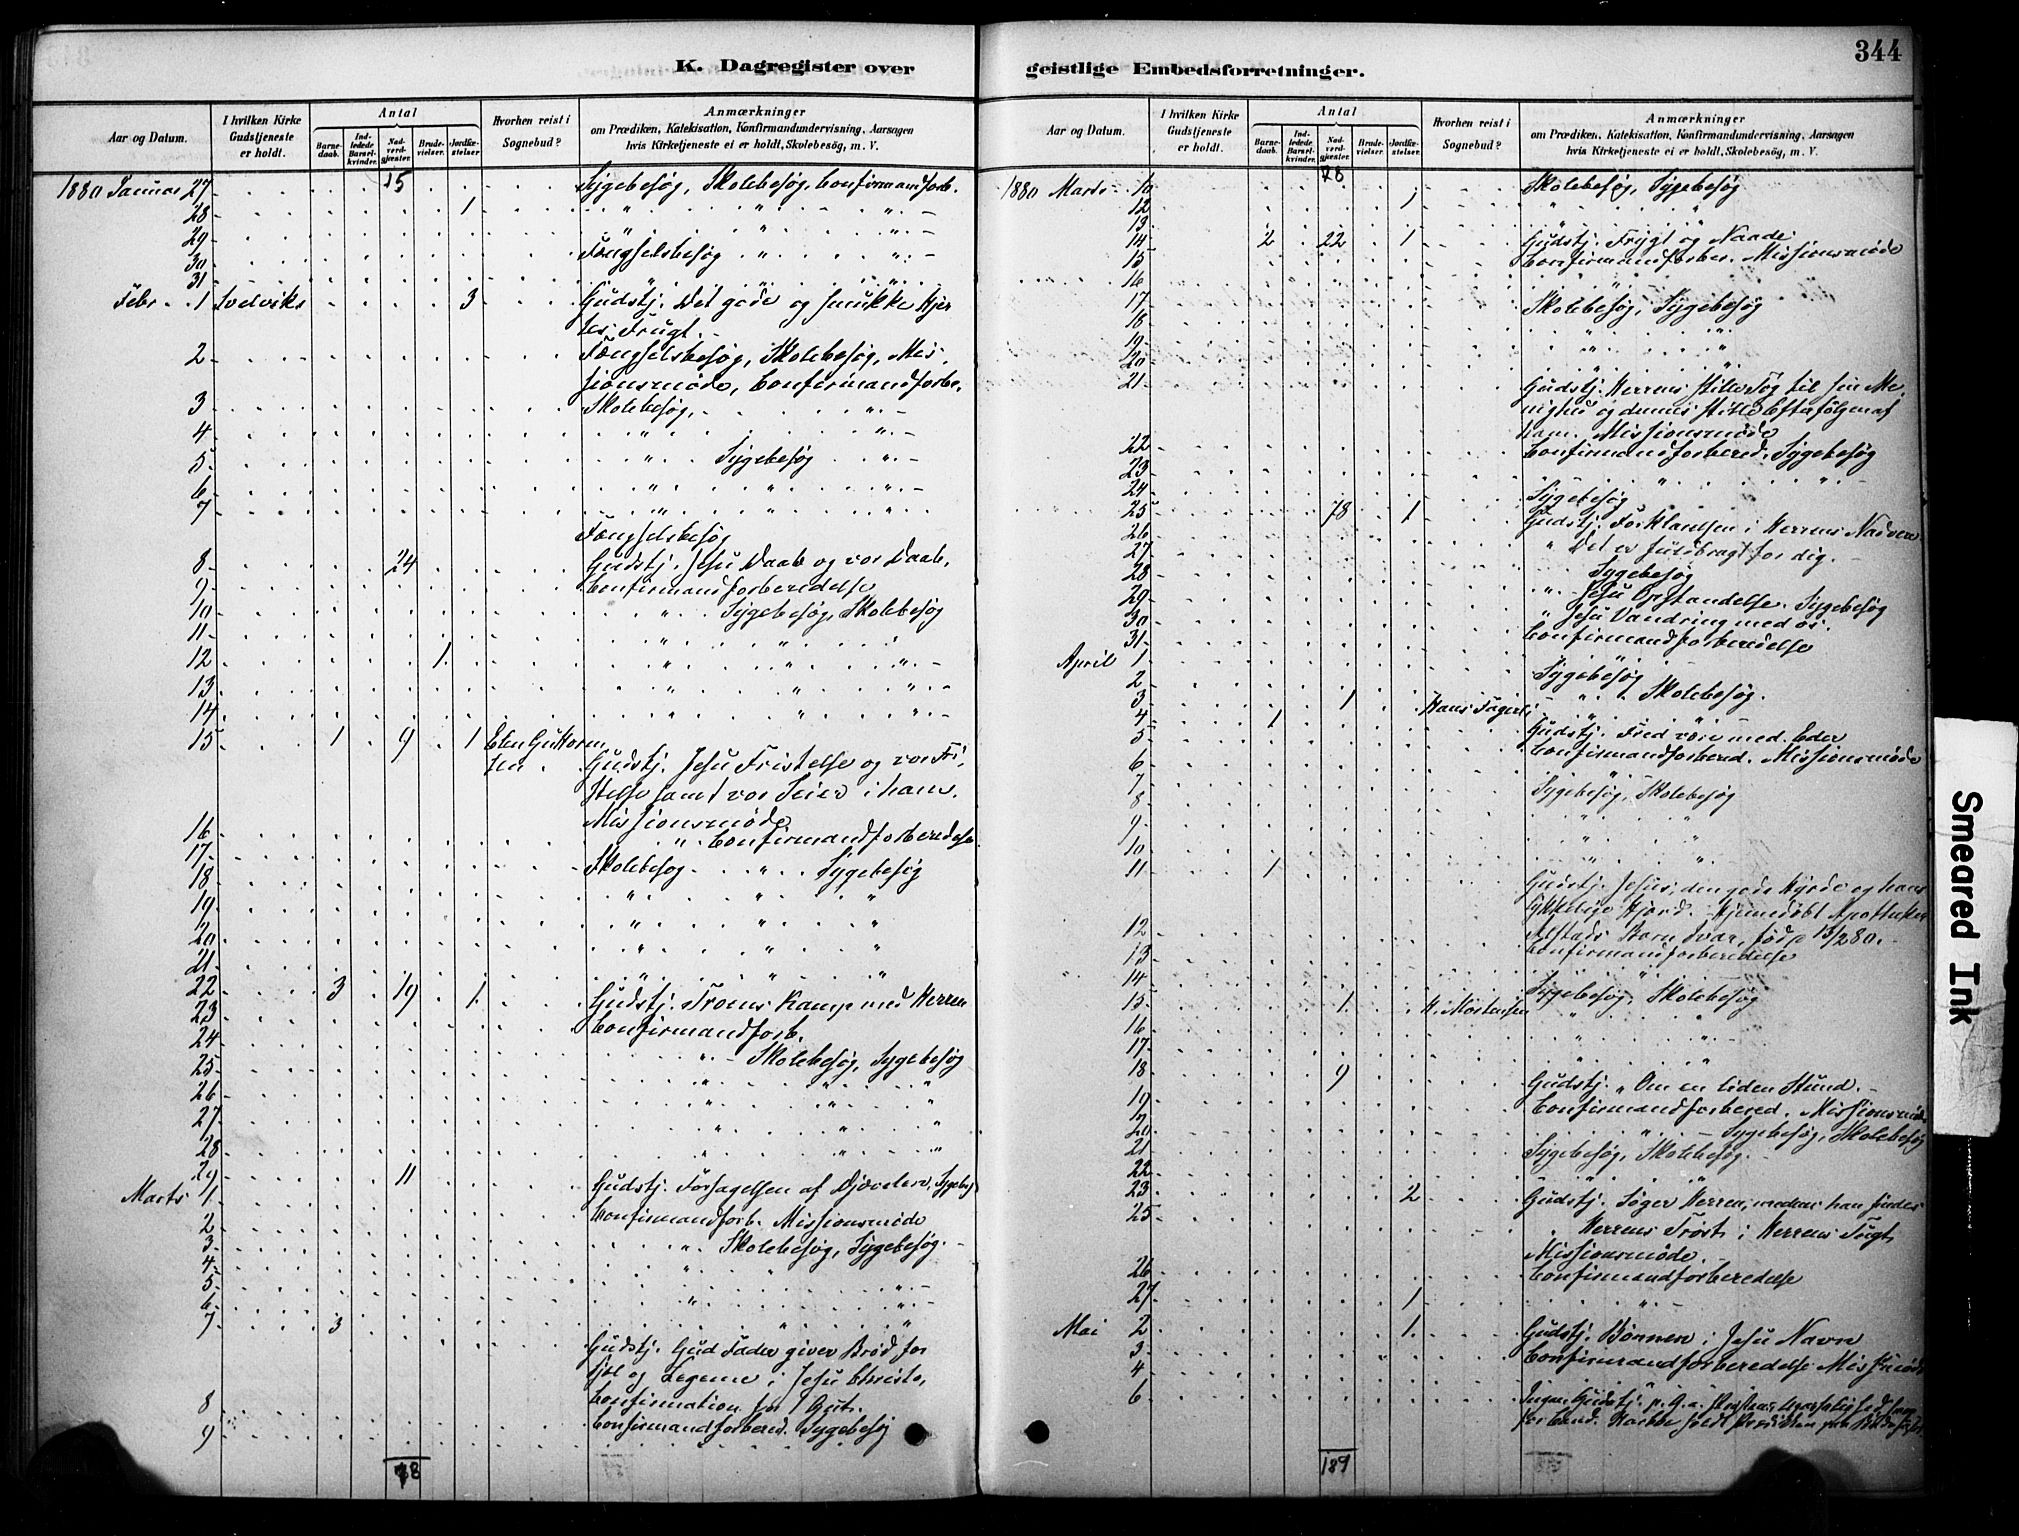 K. Dagregister over
Aar og Datum.
I hvilken Kirke Gudstjeneste er holdt.
Antal
Barnedaab.
Indledede Barselkvinder.
Nadverdgjæster.
Brudevielser.
Jordfæstelser.
Hvorhen reist i Sognebud?
Anmærkninger
om Prædiken, Katekisation, Konfirmandundervisning, Aarsagen
hvis Kirketjeneste ei er holdt, Skolebesög, m. V.
1880 Januar 27 15 Sygebesøg, Skolebesøg, Confirmandforb.
28 1 " " "
29 " " "
30 Fængselsbesøg " "
31 " " "
Febr. 1 Svelviks 3 Gudstj. Det gode og smukke Hjer
tes Frugt.
2 Fængselsbesøg, Skolebesøg, Mis
sionsmøde, Confirmandforbe.
3 Skolebesøg, "
4 " "
5 " Sygebesøg "
6 " " "
7 " " "
Fængselsbesøg
8 24 Gudstj. Jesu Daab og vor Daab.
9 Confirmandforberedelse
10 " Sygebesøg, Skolebesøg
11 " " "
12 1 " " "
13 " " "
14 " " "
15 1 9 1 Elen Guttorm
sen Gudstj. Jesu Fristelse og vor Fri
stelse samt vor Seier i ham.
Missionsmøde
16 " Confirmandforberedelse
17 Skolebesøg " Sygebesøg
18 " " "
19 " " "
20 " " "
21 " " "
22 3 19 1 Gudstj. Troens Kamp med Herren
23 Confirmandforb.
24 " Skolebesøg, Sygebesøg
25 " " "
26 " " "
27 " " "
28 " " "
29 11 Gudstj. Forsagelsen af Djævelen, Sygebes
Marts 1 Confirmandforb. Missionsmøde
2 " Skolebesøg, Sygebesøg.
3 "
4 "
5 " "
6 " "
7 3 Gudstj. Gud Fader giver Brød for
Sjæl og Legeme i Jesu Christo,
Confirmation for 1 Gut.
8 Confirmandforbered. Sygebesøg
9
78
geistlige Embedsforretninger.
344
Aar og Datum.
I hvilken Kirke Gudstjeneste er holdt.
Antal
Barnedaab.
Indledede Barselkvinder.
Nadverdgjæster.
Brudevielser.
Jordfæstelser.
Hvorhen reist i Sognebud?
Anmærkninger
om Prædiken, Katekisation, Konfirmandundervisning, Aarsagen
hvis Kirketjeneste ei er holdt, Skolebesög, m. V.
78
1880 Marts 10 Skolebesøg, Sygebesøg
12 1 " "
13 " "
14 2 22 1 Gudstj. Frygt og Naade.
15 Confirmandforber. Missionsmøde
16 " "
17 Skolebesøg, Sygebesøg
18 " "
19 " "
20 " "
21 Gudstj. Herrens stille Tog til sin Me
nighed og dennes stille Efterfølgen af
ham. Missionsmøde
22 Confirmandforbered. Sygebesøg
23 " "
24 Sygebesøg
25 78 1 Gudstj. Forklarelsen i Herrens Nadvere
26 " Det er fuldbragt for dig.
27 Sygebesøg
28 " Jesu Opstandelse. Sygebesøg
29 " Jesu Vandring med os.
30 Confirmandforberedelse
31
April 1 Sygebesøg
2 " Skolebesøg.
3 1 Hans Fagerli
4 1 Gudstj. Fred være med Eder
5 Confirmandforbered. Missionsmøde
6 "
7 Sygebesøg, Skolebesøg
8
9 " "
10 " "
11 1 Gudstj. Jesus, den gode Hyrde og hans
lykkelige Hjord. Hjemmedøbt Apotheker
Barn Ivar, fød 13/2 80.
12 Confirmandforberedelse
13 "
14 Sygebesøg, Skolebesøg
15 1 H. Mortensen
16 " "
17 " "
18 9 Gudstj. „Om en liden Stund.
19 Confirmandforbered. Missionsmøde
20 " Sygebesøg, Skolebesøg
21 Sygebesøg, Skolebesøg.
22 " "
23 2 Gudstj. Søger Herren, medens han findes
25 " Herrens Trøst i Herrens Tugt
Missionsmøde
26 Confirmandforberedelse
27 1 "
Mai 2 1 Gudstj. Bønnen i Jesu Navn
3 Confirmandforberedelse Missmøde
4 "
6 Ingen Gudstj. p. G. a.
189
Smeared Ink